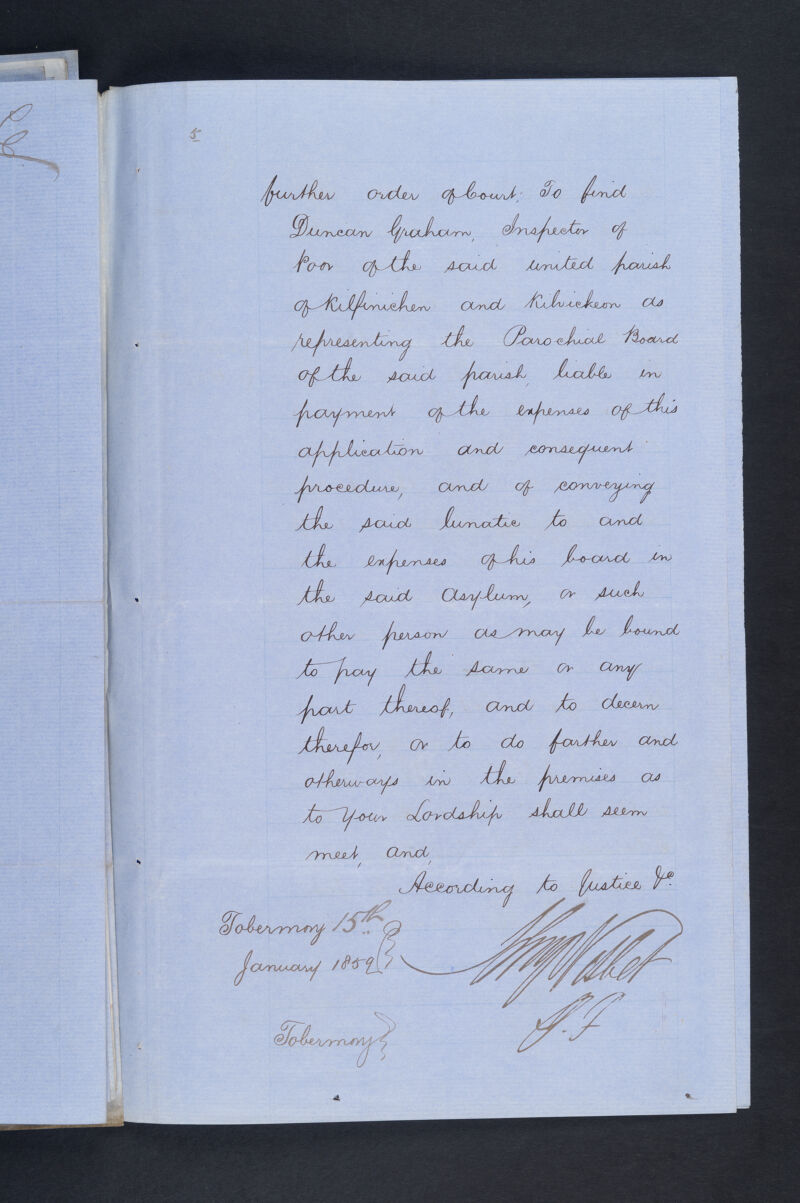 5
further order of Court; To find
Duncan Graham, Inspector of
Poor of the said united parish
of Kilfinichen and Kilvickeon as
representing the Parochial Board
of the said parish, liable in
payment of the expenses of this
application and consequent
procedure, and of conveying
the said lunatic to and
the expenses of his board in
the said Asylum, or such
other person as may be bound
to pay the same or any
part thereof, and to decern
therefor, or to do farther and
otherways in the premises as
to Your Lordship shall seem
meet, and,
According to Justice &c
Tobermory 15th
January 1859
Nisbet
P.F
Tobermory